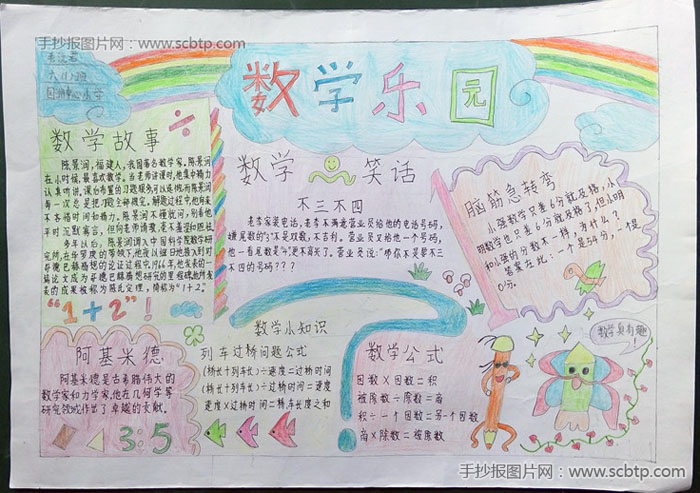 手抄报图片网：www.scbtp.com
手抄报图片网：www.scbtp.com
六(1)班
数学乐园
数学故事
÷
陈景润，福建人，我国著名数学家，陈景润
在小时候，最喜欢数学。当老师讲课时，他集中精力
认真听讲，
每一次总是把习题全部做完。解题过程中，他有来
不吝惜时间和精力。陈景润不懂就问，别看他
平时沉默寡言，但向老师请教，毫不羞涩和
多年以后，陈景润调入中国科学院数学研
究所，在华罗庚的带领下，他夜以继日地投入到对
哥德巴赫猜想的论证过程中。1966年，他发表的一
篇论文成为哥德巴赫猜想研究的里程碑。他所发
表的成果被称为陈氏定理，简称为"1+2"。
"1+2"！
数学 笑话
不三不四
老李家装电话，老李不满意营业员给他的电话号码，
嫌尾数的"3"不是双数，不吉利。营业员又给他一个号码，
他一看尾数是"4"，更不喜欢了。营业员说："那你不是要不三
不四的号码???
脑筋急转弯
小强数学只差6分就及格，小
明数学也只差6分就及格了，但小明
和小强的分数不一样，为什么？
答案在此：一个是54分，一个是
0分。
阿基米德
阿基米德是古希腊伟大的
数学家和力学家，他在几何学等
研究领域作出了卓越的贡献。
3:5
数学小知识
列车过桥问题公式
(桥长+列车长)÷速度=过桥时间
(桥长+列车长)÷过桥时间=速度
速度×过桥时间=桥车长度之和
数学公式
因数×因数=积
被除数÷除数=商
积÷一个因数=另一个因数
商×除数=被除数
数学真有趣！
手抄报图片网：www.scbtp.com